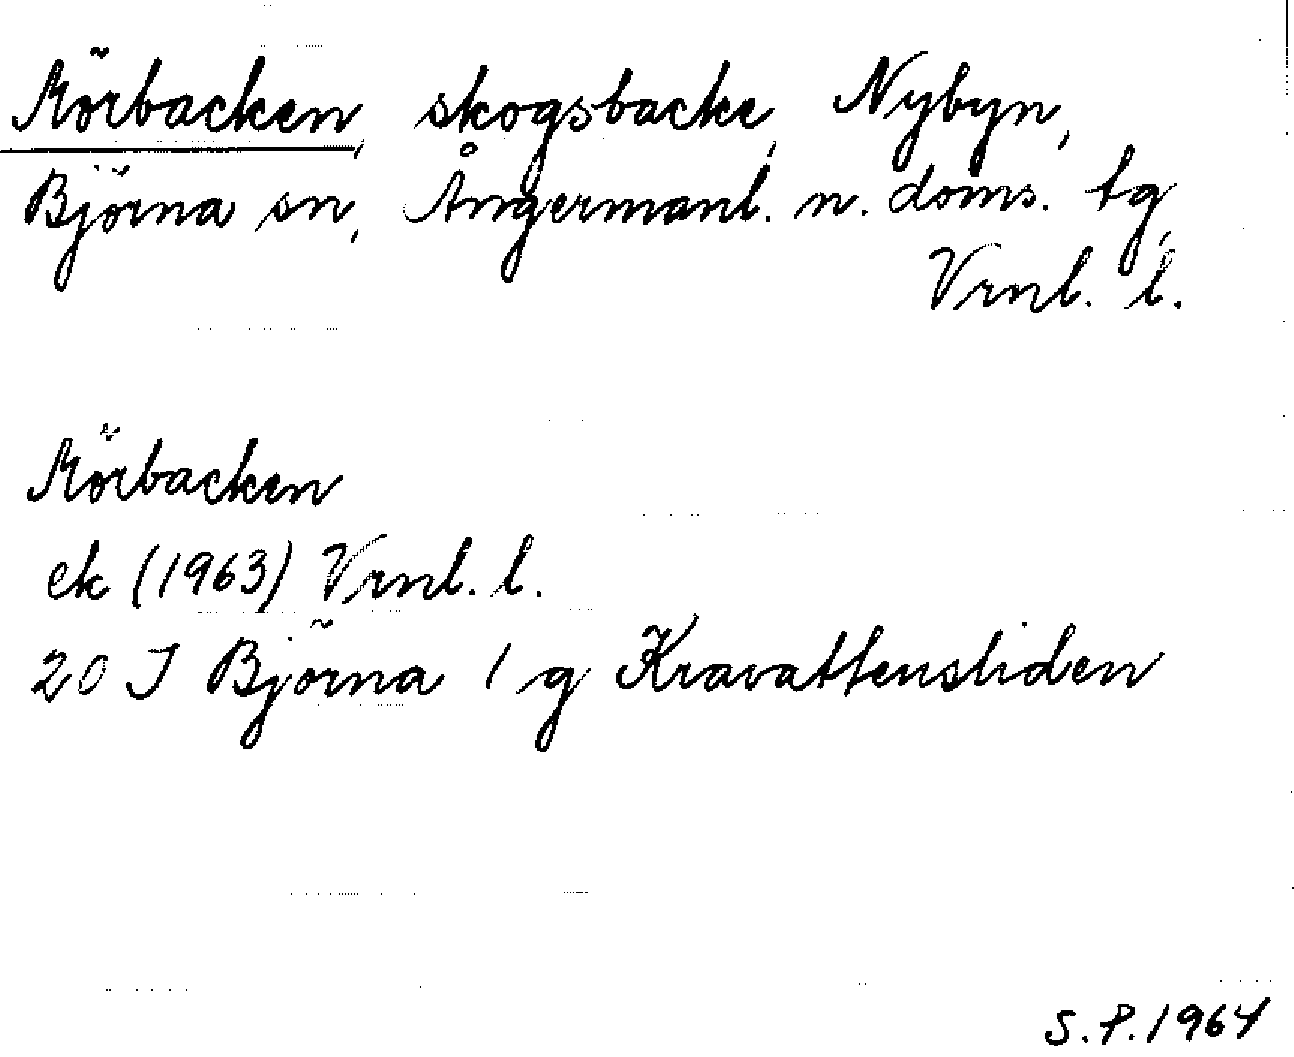 Mörbacken, skogsbacke, Nybyn,
Björna sn, Ångermanl. n. doms. tg,
Vrnl. l.
Mörbacken
ek (1963) Vrnl. l.
20 J Björna 1 g Kravattensliden
S.P. 1964